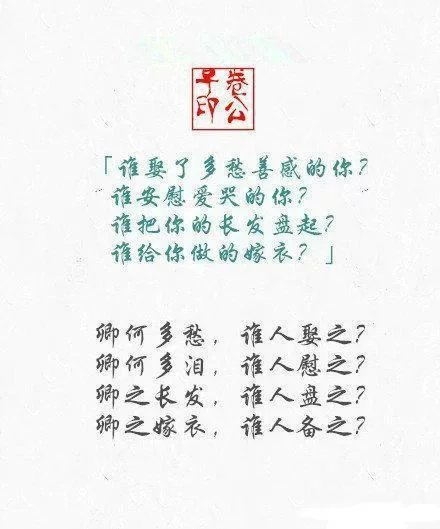 卷公
早印
「谁娶了多愁善感的你？
谁安慰爱哭的你？
谁把你的长发盘起？
谁给你做的嫁衣？」
卿何多愁，谁人娶之？
卿何多泪，谁人慰之？
卿之长发，谁人盘之？
卿之嫁衣，谁人备之？